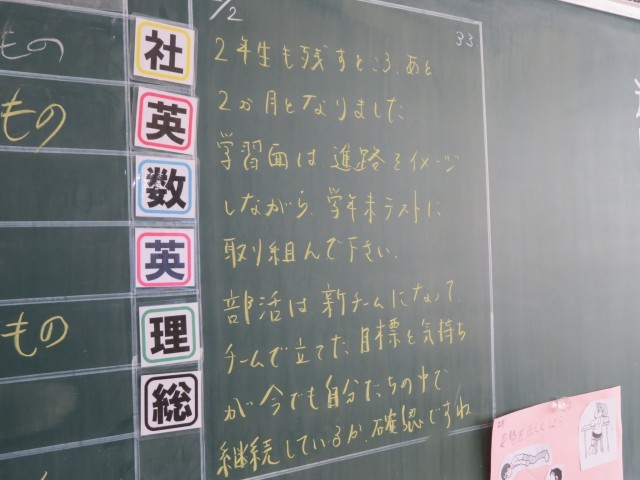 /2
33
もの
もの
もの
社
英
数
英
理
総
2年生も残すところ、あと
2か月となりました
学習面は進路をイメージ
しながら、学年末テストに
取り組んで下さい。
部活は新チームになって
チームで立てた目標と気持ち
が今でも自分たちの中で
継続しているか、確認ですね